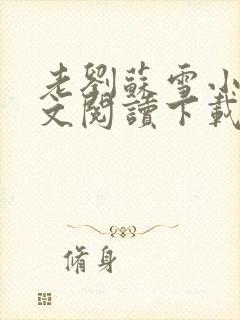 老劉蘇雪小
文閱讀下載
脩身